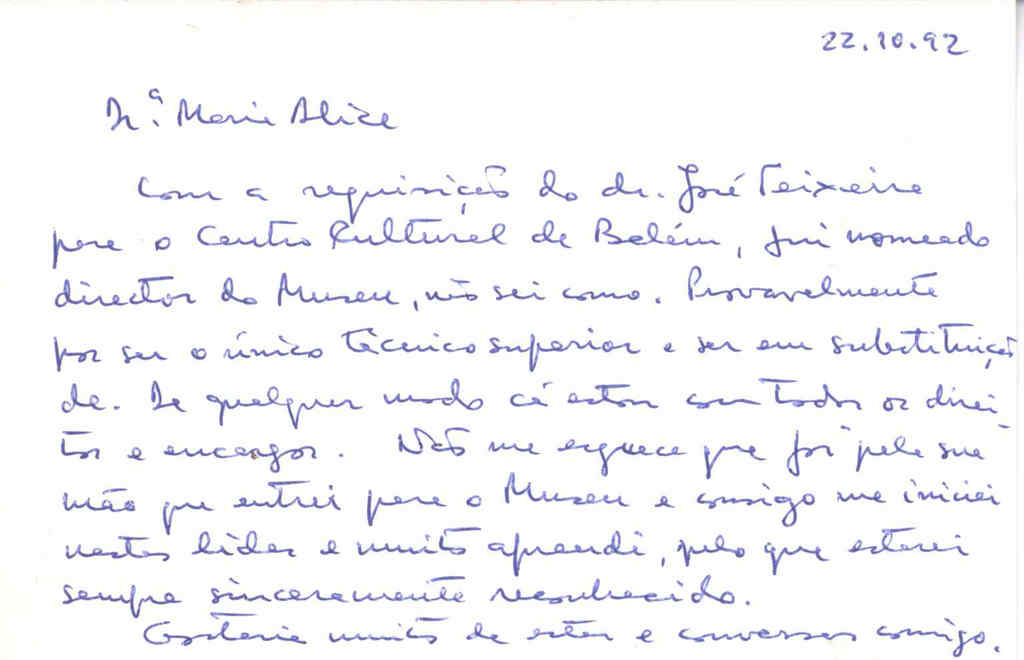 22.10.92
Dr.ª Maria Alice
Com a requisição do dr. José Teixeira
para o Centro Cultural de Belém, fui nomeado
director do Museu, não sei como. Provavelmente
por ser o único técnico superior e ser em substituição
de. De qualquer modo cá estou com todos os direi-
tos e encargos. Não me esquece que foi pela sua
mão que entrei para o Museu e consigo me iniciei
nestas lides e muito aprendi, pelo que estarei
sempre sinceramente reconhecido.
Gostaria muito de estar e conversar comigo.